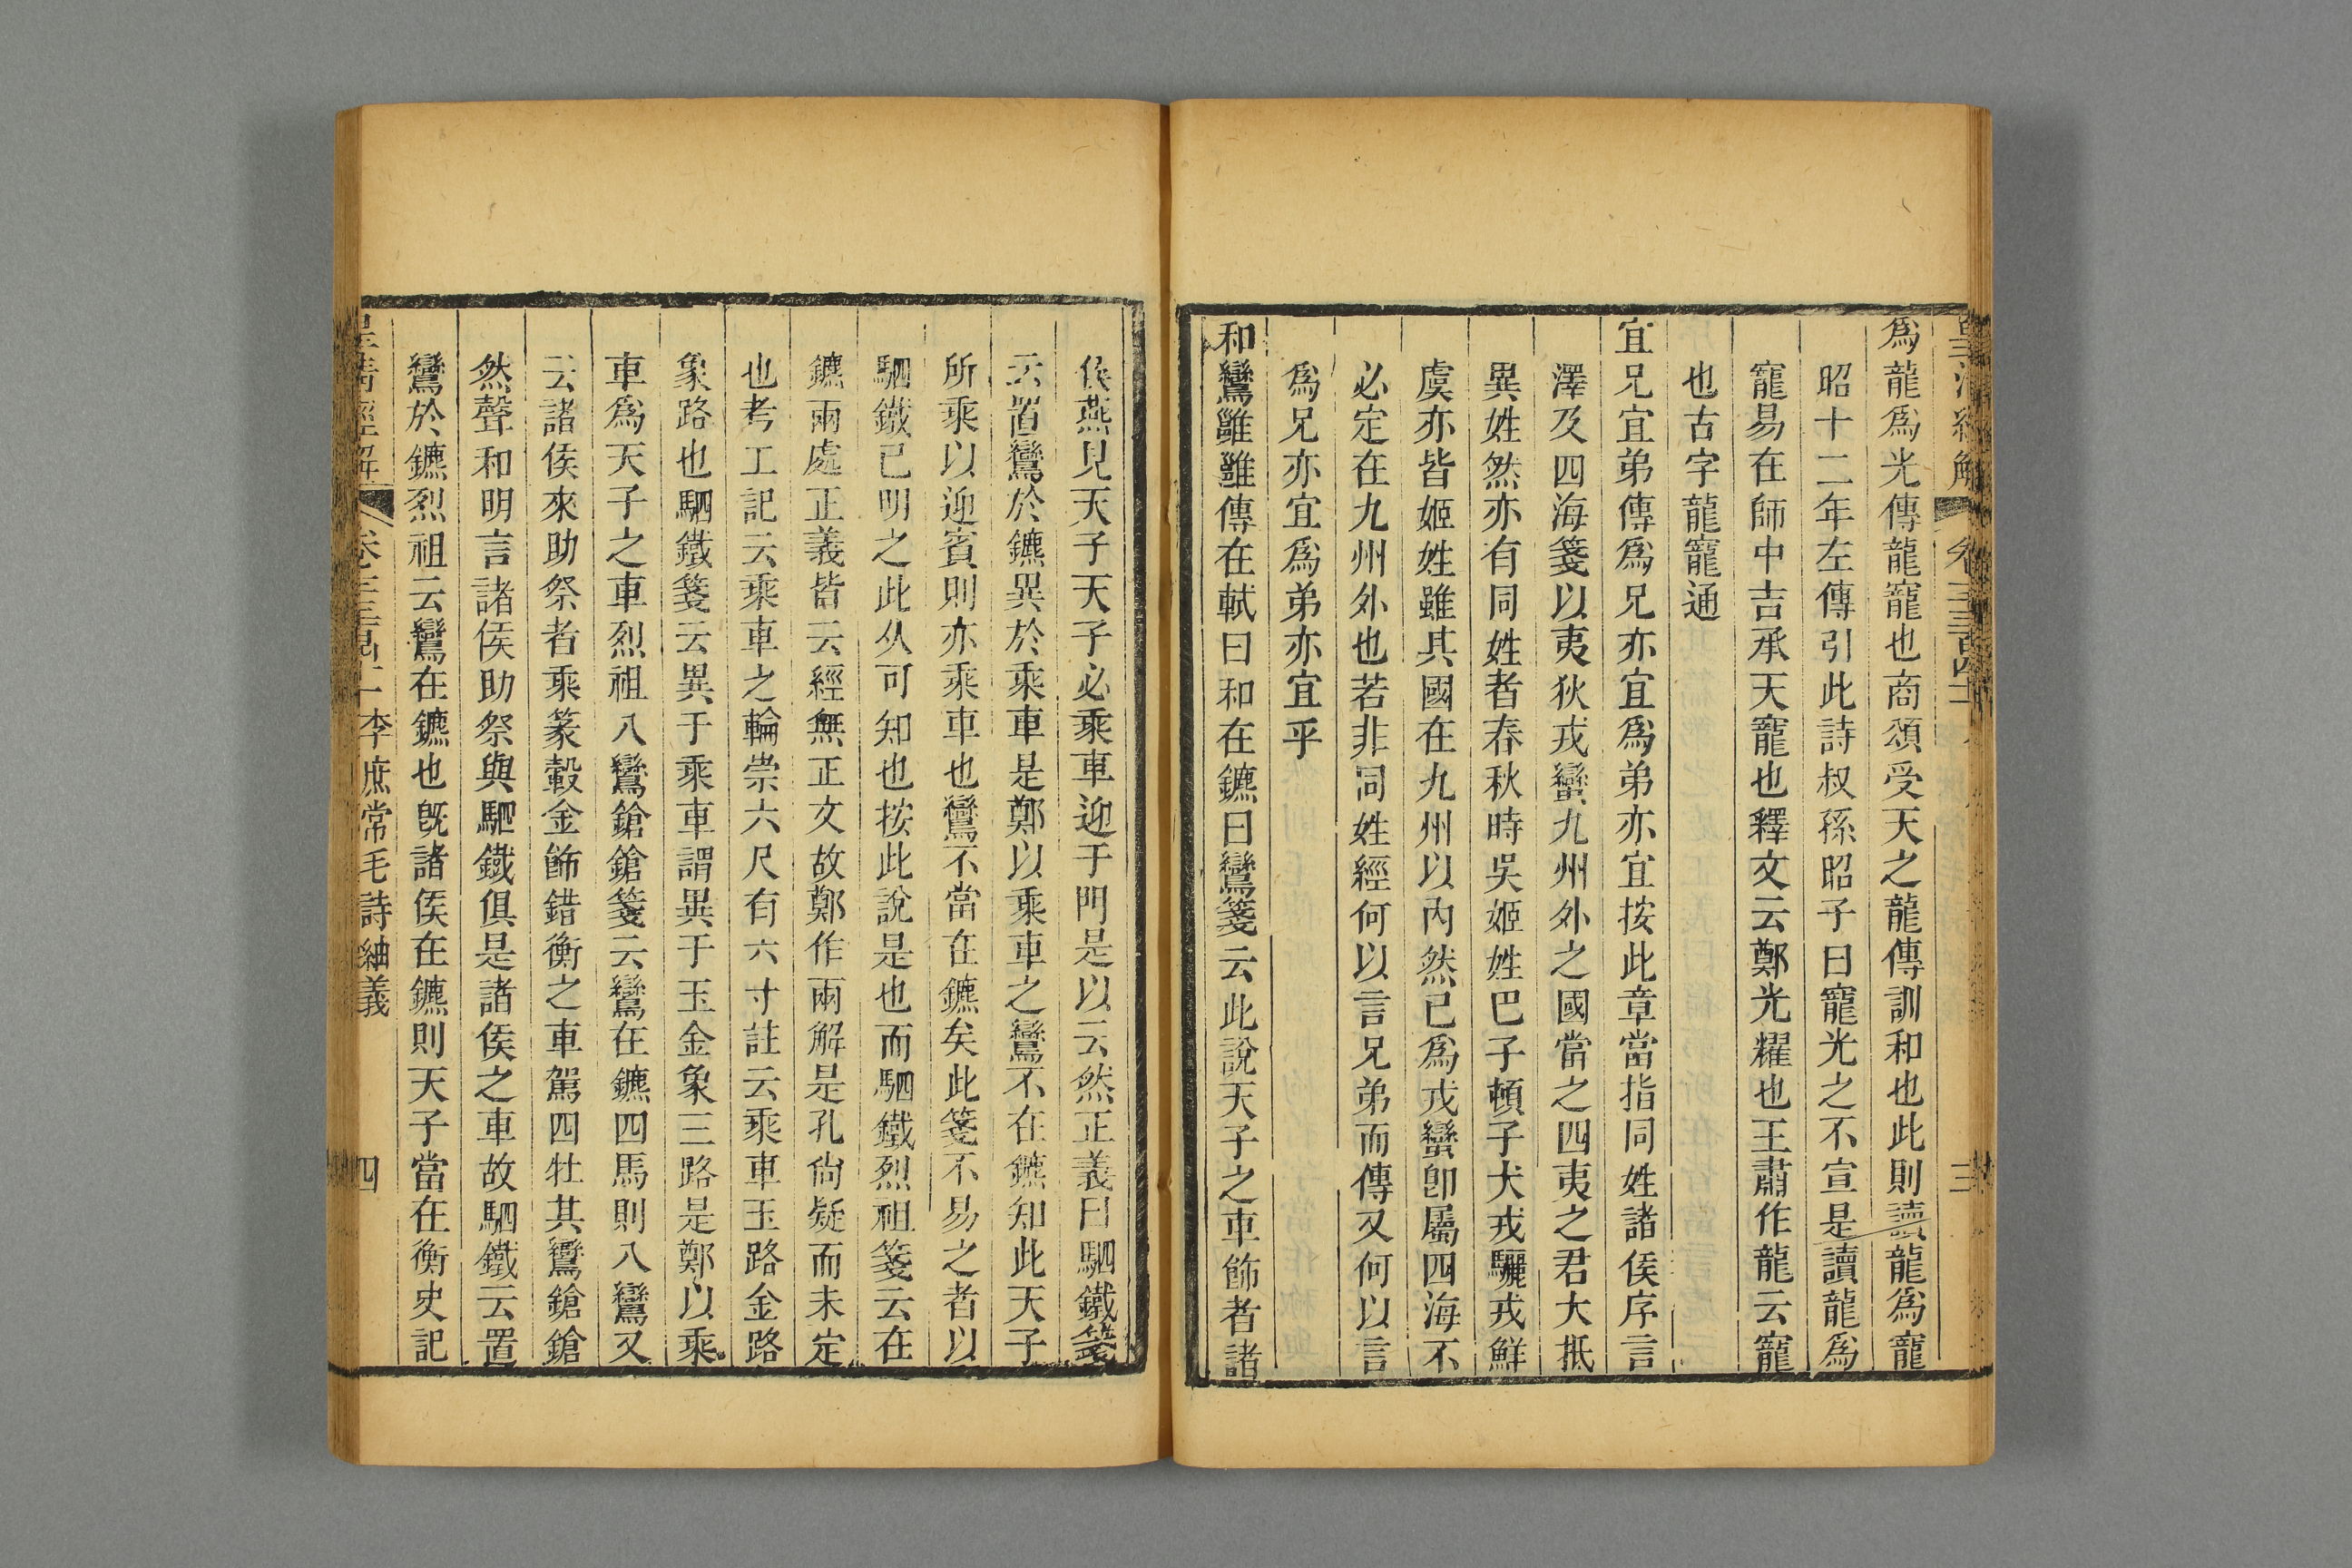 爲龍爲光傳龍寵也商頌受天之龍傳訓和也此則讀龍爲寵
昭十二年左傳引此詩叔孫昭子曰寵光之不宣是讀龍爲
寵易在師中吉承天寵也釋文云鄭光耀也王肅作龍云寵
也古字龍寵通
宜兄宜弟傳爲兄亦宜爲弟亦宜按此章當指同姓諸侯序言
澤及四海箋以夷狄戎蠻九州外之國當之四夷之君大抵
異姓然亦有同姓者春秋時吳姬姓巴子頓子犬戎驪戎鮮
虞亦皆姬姓雖其國在九州以內然已爲戎蠻卽屬四海不
必定在九州外也若非同姓經何以言兄弟而傳又何以言
爲兄亦宜爲弟亦宜乎
和鸞雝雝傳在軾曰和在鑣曰鸞箋云此說天子之車飾者諸
侯燕見天子天子必乘車迎于門是以云然正義曰駟鐵箋
云置鸞於鑣異於乘車是鄭以乘車之鸞不在鑣知此天子
所乘以迎賓則亦乘車也鸞不當在鑣矣此箋不易之者以
駟鐵已明之此从可知也按此說是也而駟鐵烈祖箋云在
鑣兩處正義皆云經無正文故鄭作兩解是孔尙疑而未定
也考工記云乘車之輪崇六尺有六寸註云乘車玉路金路
象路也駟鐵箋云異于乘車謂異于玉金象三路是鄭以乘
車爲天子之車烈祖八鸞鎗鎗箋云鸞在鑣四馬則八鸞又
云諸侯來助祭者乘篆轂金飾錯衡之車駕四牡其鸞鎗鎗
然聲和明言諸侯助祭與駟鐵俱是諸侯之車故駟鐵云置
鸞於鑣烈祖云鸞在鑣也旣諸侯在鑣則天子當在衡史記
皇清經解 李庶常毛詩紬義 四